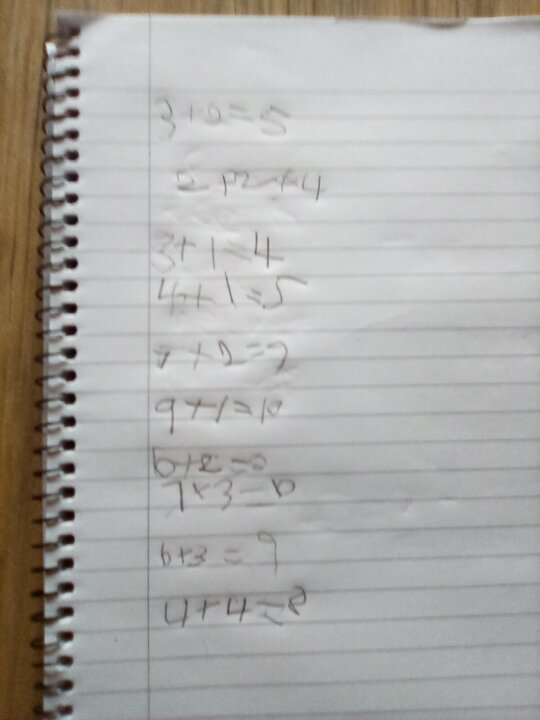 3+2=5
2+2+4
3+1=4
4+1=5
+2=7
9+1=10
6+2=8
7+3=10
6+3=9
4+4=8